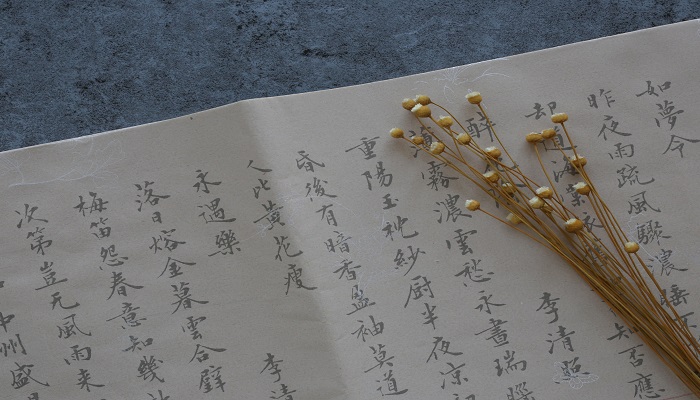 如夢令
昨夜雨疏風驟濃睡不
却道海棠知否應
醉 李清照
薄霧濃雲愁永晝瑞腦
重陽玉枕紗厨半夜凉初
昏後有暗香盈袖莫道
人比黃花瘦
永遇樂 李清
落日熔金暮雲合璧
梅笛怨春意知幾
次第豈无風雨來
中州盛